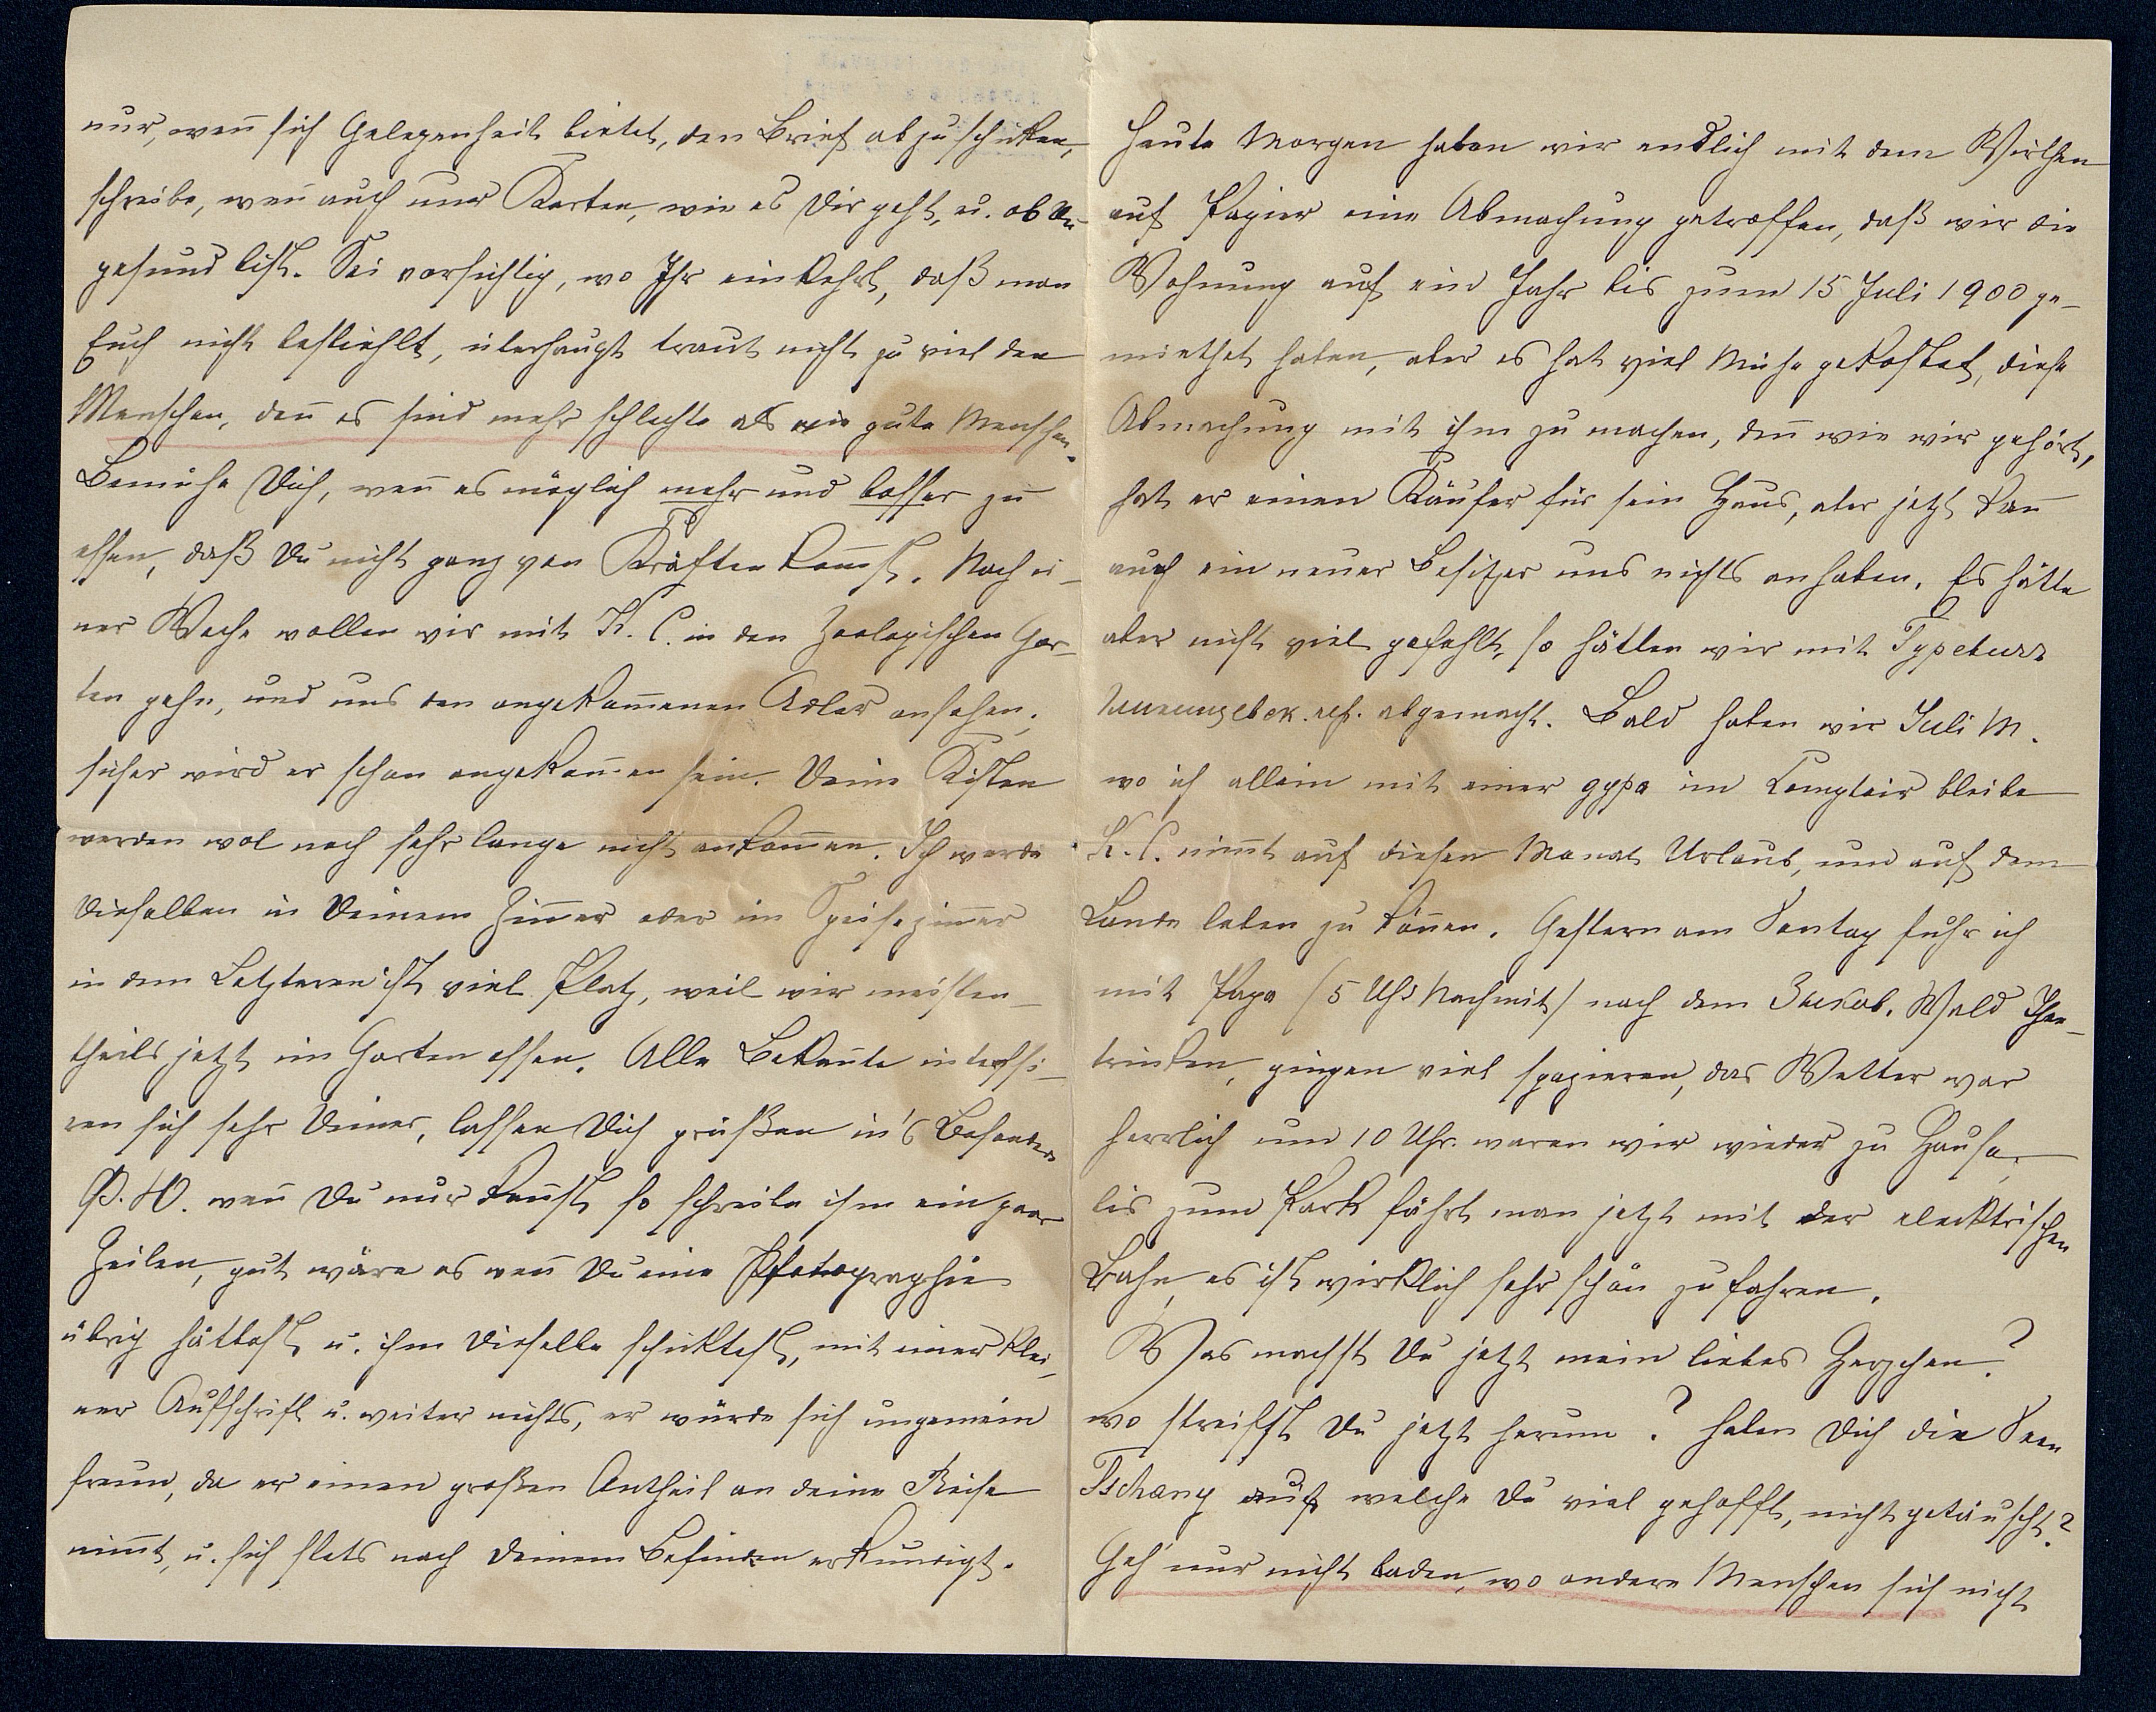 nur, weñ sich Gelegenheit bietet, den Brief abzuschicken,
schreibe, weñ auch nur Karten, wie es Dir geht, u. ob Du
gesund bist. Sei vorsichtig, wo Ihr einkehrt, daß man
Euch nicht bestiehlt, überhaupt traut nicht zu viel den
Menschen, deñ es sind mehr schlechte als wie gute Menschen.
Bemühe Dich, weñ es möglich mehr und besser zu
essen, daß Du nicht ganz von Kräften kom̃st. Nach ei-
ner Woche wollen wir mit K. C. in den Zoologischen Gar-
ten gehn, und uns den angekom̃enen Adler ansehen,
sicher wird er schon angekom̃en sein. Deine Kisten
werden wol noch sehr lange nicht ankom̃en. Ich werde
dieselben in Deinem Zim̃er oder im Speisezim̃er
in dem Letzteren ist viel Platz, weil wir meisten-
theils jetzt im Garten essen. Alle Bekañte interessi-
ren sich sehr Deiner, lassen Dich grüßen in's Besondere
weñ Du nur kañst so schreibe ihm ein paar
Zeilen, gut wäre es weñ Du eine Photographie
übrig hättest u. ihm dieselbe schicktest, mit einer klei-
ner Aufschrift u. weiter nichts, er würde sich ungemein
freun, da er einen großen Antheil an deine Reise
nim̃t, u. sich stets nach Deinem Befinden erkundigt.
Heute Morgen haben wir endlich mit dem Wirthen
auf Papier eine Abmachung getroffen, daß wir die
Wohnung auf ein Jahr bis zum 15 Juli 1900 ge-
miethet haben, aber es hat viel Mühe gekostet, diese
Abmachung mit ihm zu machen, deñ wie wir gehört,
hat er einen Käufer für sein Haus, aber jetzt kañ
auch ein neuer Besitzer uns nichts anhaben. Es hätte
aber nicht viel gefehlt, so hätten wir mit
abgemacht. Bald haben wir Juli M.
wo ich allein mit einer дура im Comptoir bleibe
K. C. nim̃t auf diesen Monat Urlaub, um auf dem
Lande leben zu köñen. Gestern am Sontag fuhr ich
mit Papa (5 Uhr Nachmit) nach dem Wald Thee
trinken, gingen viel spazieren, das Wetter war
herrlich um 10 Uhr. waren wir wieder zu Hause,
bis zum Park fährt man jetzt mit der elecktrischen
Bahn, es ist wirklich sehr schön zu fahren.
Was machst Du jetzt mein liebes Herzchen?
wo streifst Du jetzt herum? haben Dich die Seen
Tschany auf welche Du viel gehofft, nicht getäuscht?
Geh' nur nicht baden, wo andere Menschen sich nicht